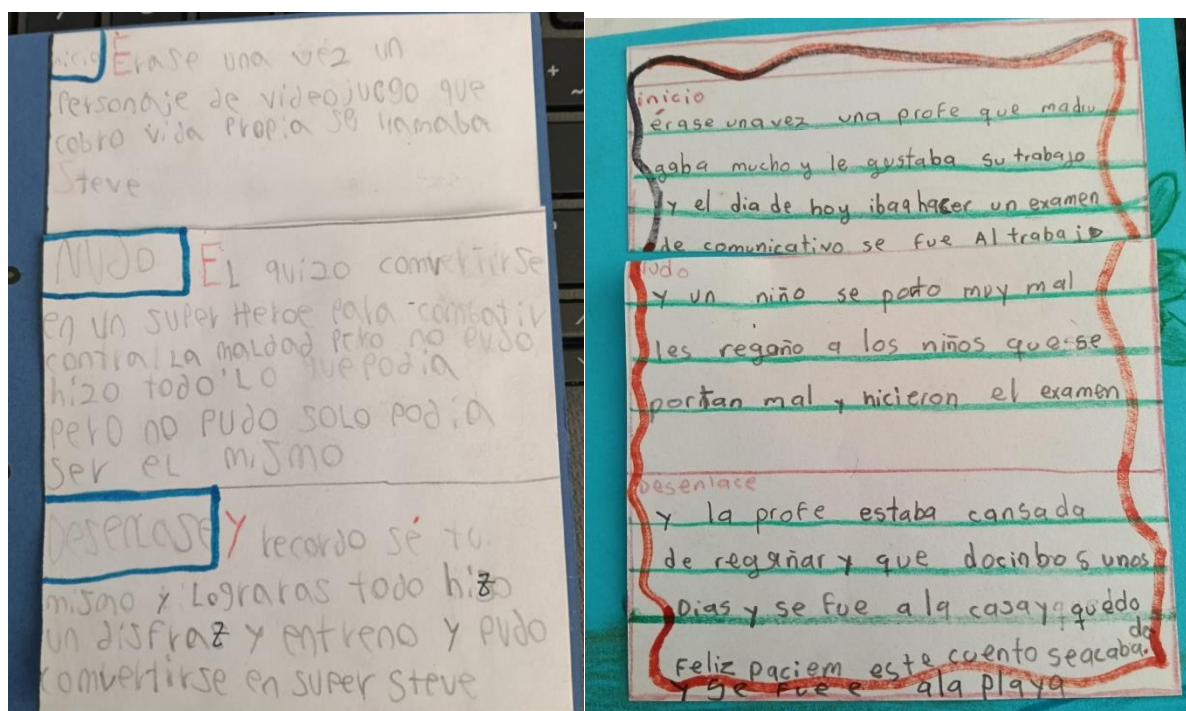 inicio Érase una vez un
Personaje de videojuego que
cobro vida propia se llamaba
Steve
NUDO EL quizo convertirse
en un super Heroe para combatir
contra LA maldad pero no pudo
hizo todo LO que podia
pero no pudo solo podia
ser el mismo
Desenlase Y recordo sé tu
mismo y Lograras todo hizo
un disfraz y entreno y pudo
comvertirse en super steve
inicio
érase una vez una profe que madru
gaba mucho y le gustaba su trabajo
y el dia de hoy iba a hacer un examen
de comunicativo se fue Al trabajo
nudo
y un niño se porto muy mal
les regaño a los niños que se
portan mal y hicieron el examen
Desenlace
y la profe estaba cansada
de regañar y que unos
Dias y se fue a la casa y quedo
Feliz este cuento se acaba
do
y se fue a la playa